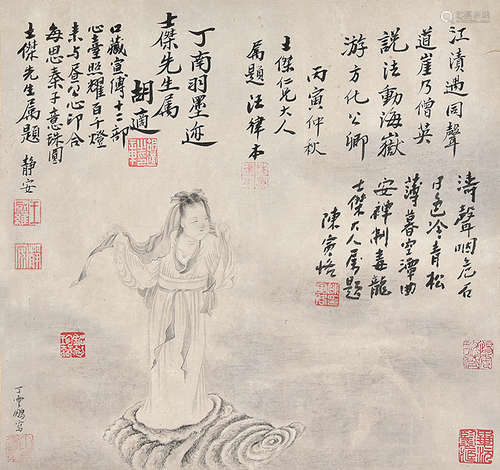 江濆遇同聲
道崖乃僧英
說法動海嶽
游方化公卿
丙寅仲秋
士傑仁兄大人
屬題 汪律本
丁南羽墨迹
士傑先生属
胡適
口藏宣傳十二部
心臺照耀百千燈
未与晝公心印合
每思秦子意珠圓
士傑先生属題 静安
濤聲咽危石
日色冷青松
薄暮空潭曲
安禪制毒龍
士傑大人属題
陳寅恪
丁雲鵬寫